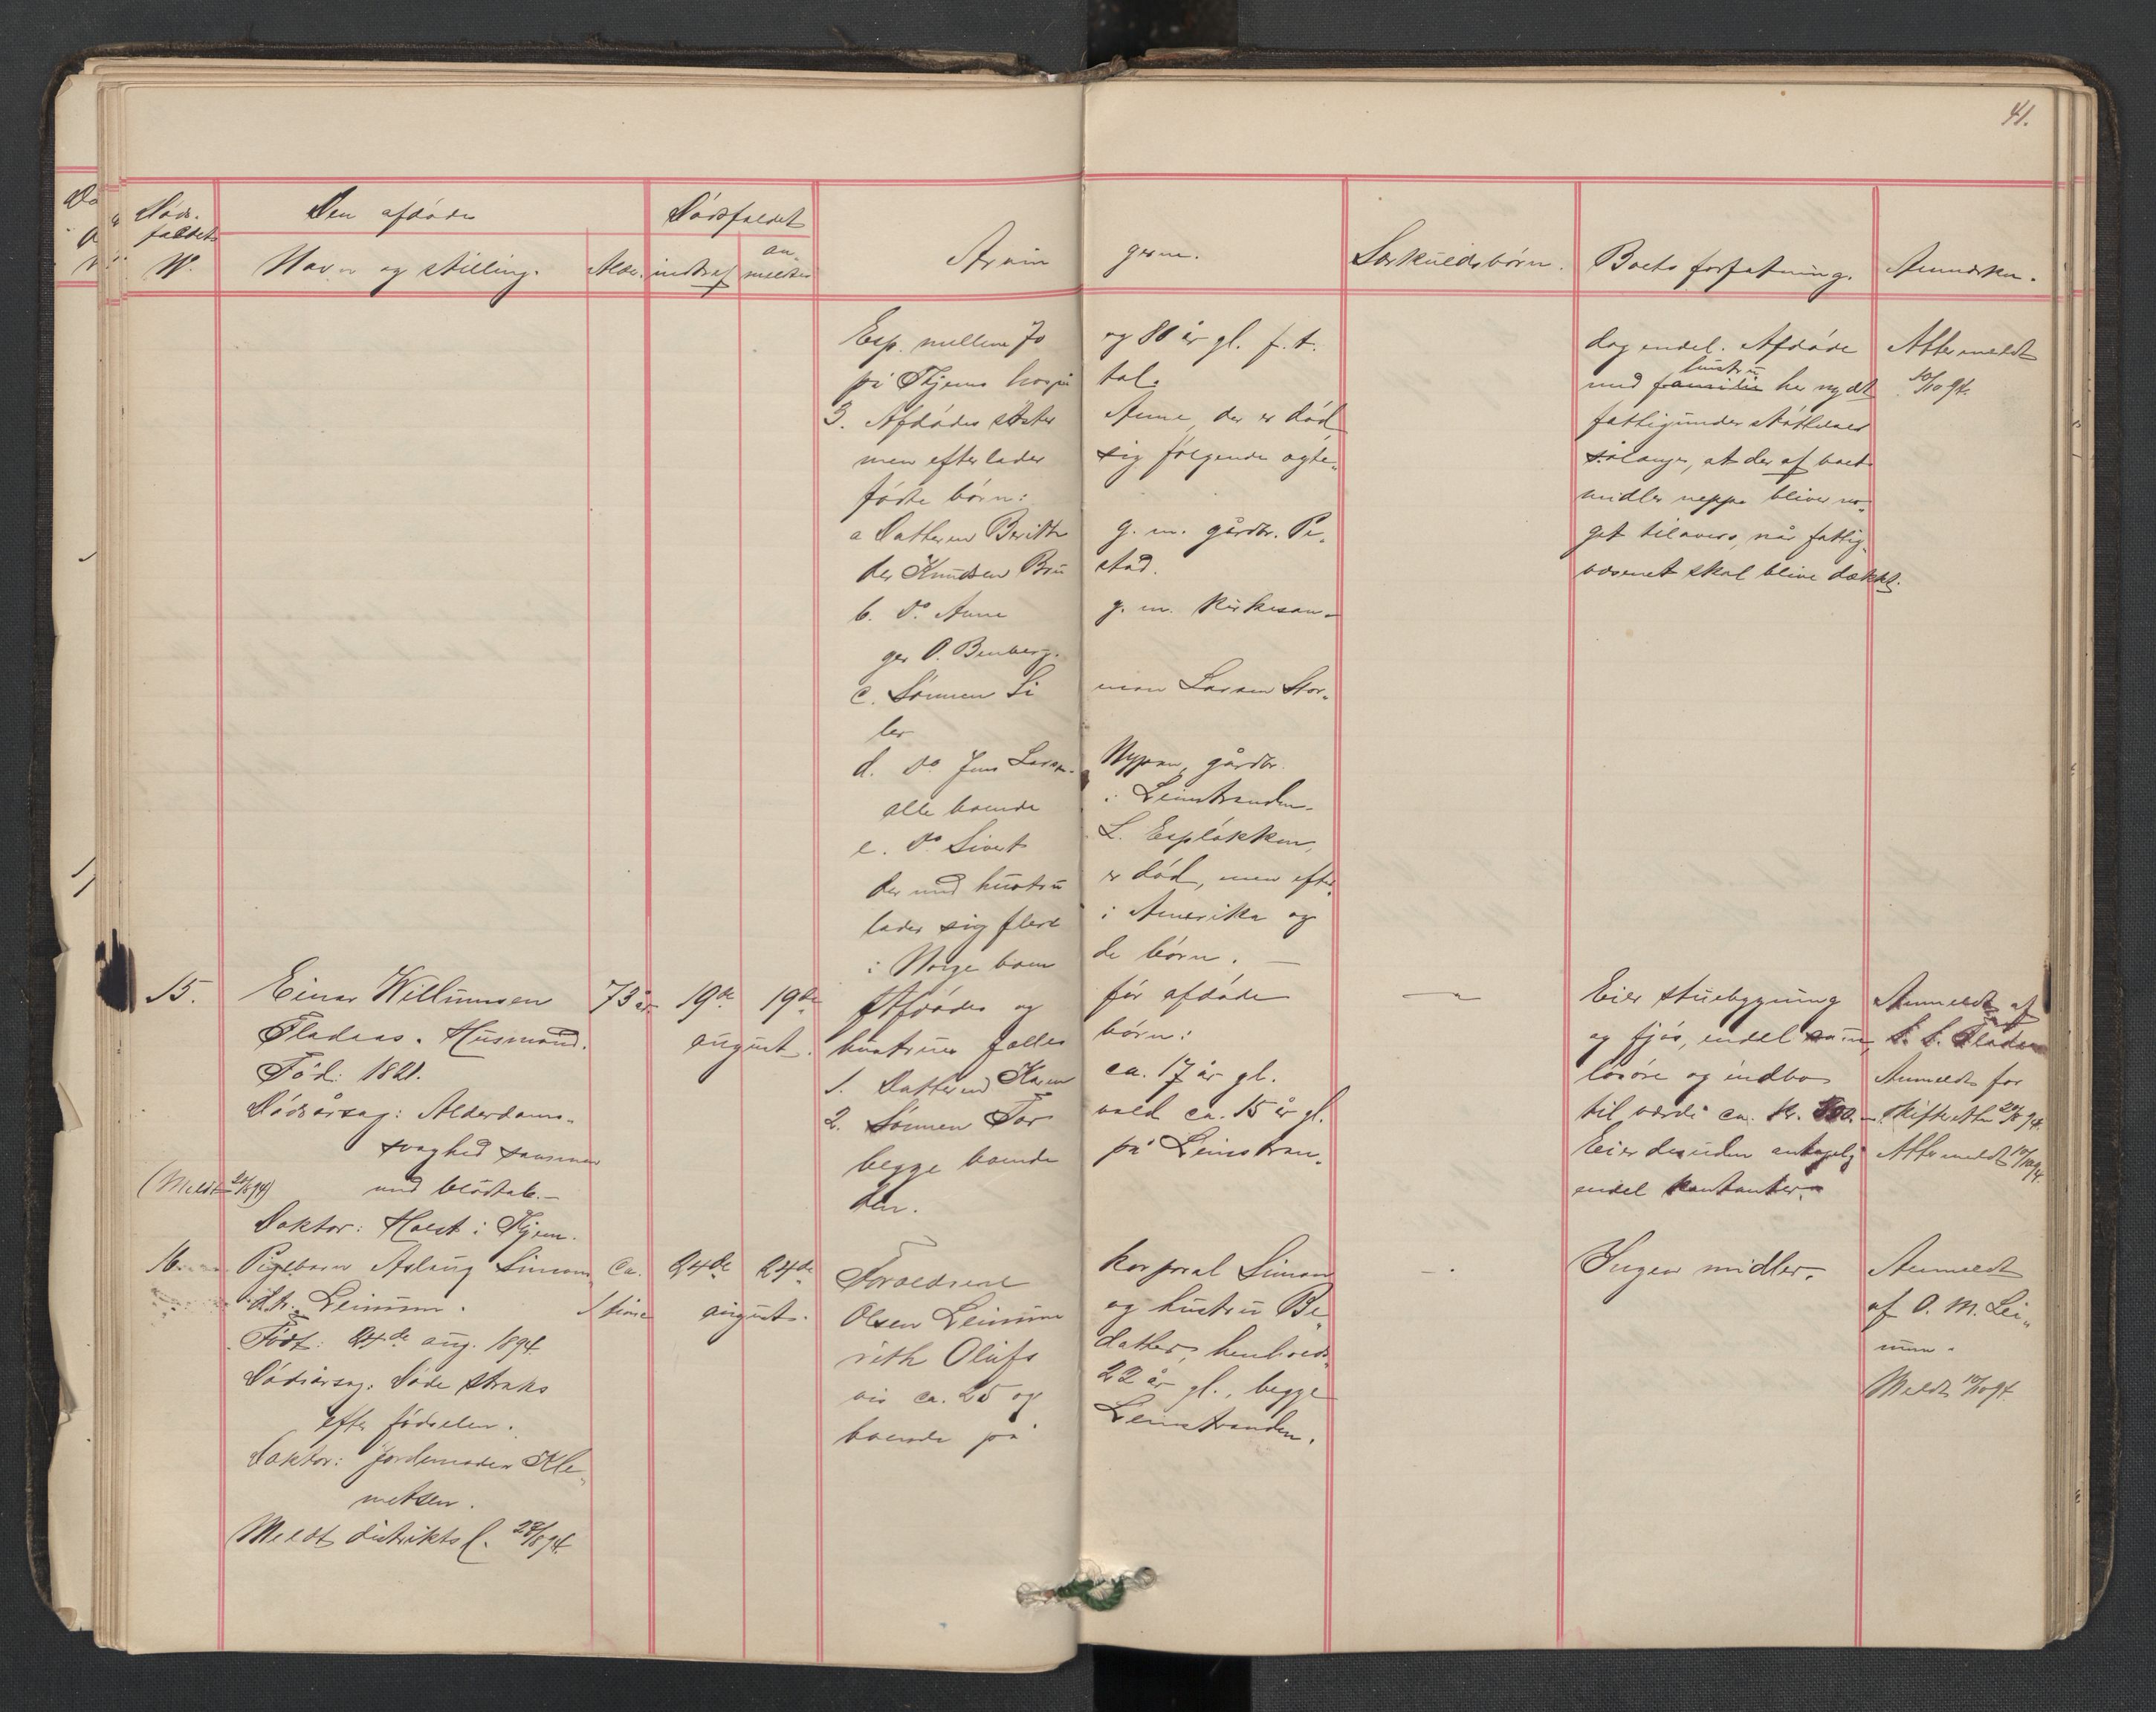 41.
Døds-
faldets
Nº.
Den afdøde
Navn og stilling.
Alder.
Dødsfaldet
indtraf
an-
meldt
Arvin gerne.
Særkuldsbørn.
Boets forfatning.
Anmerkn.
Esp. mellem 70 og 80 år gl. f. t.
på Thjems hospi tal.
3. Afdødes søster Anne, der er død
men efterlader sig følgende ægte-
fødte børn:
a Datteren Berit g. m. gårdbr. Pe-
der Knudsen Bru stad.
b. Do. Anne g. m. kirkesan-
ger O. Benberg.
c. Sønnen Si mon Larsen Stor-
ler
d. Do Jens Larsen Nypan, gårdbr.
alle boende i Leinstranden.
e. Do Sivert L. Espløkken,
der med hustru er død, men efter-
lader sig flere i Amerika og
i Norge boen de børn. —
dog endel. Afdøde
hustru
med familie har nydt
fattigunderstøttelse
sålænge, at der af boets
midler neppe bliver no-
get tilovers, når fattig-
væsenet skal blive dækket.
Attermeldt
10/10 94.
15.
Einar Willumsen
Fladaas. Husmand.
Fød: 1821.
Dødsårsag: Alderdoms-
svaghed sammen
med blodtab. —
(Meldt 20/8 94)
Doktor: Holst i Thjem.
73 år
19de
19de
august.
Afdødes og før afdøde
hustrues fælles børn:
1. Datteren Karen ca. 17 år gl.
2. Sønnen Tor vald ca. 15 år gl.
begge boende på Leinstran-
den.
—
Eier stuebygning
og fjøs, endel
løsøre og indbo
til værdi ca. kr. 500. —
Eier desuden antagelig
endel kontanter.
Anmeldt af
Anmeldt for
skifteretten 20/8 94.
Attermeldt 10/10 94.
16.
Pigebarn Aslaug Simons-
dtr. Leinum.
Født: 24de aug. 1894.
Dødsårsag: Døde straks
efter fødselen.
Doktor: Jordemoder Kle-
metsen.
Meldt distriktsl. 28/8 94.
Ca.
1 time
24de
24de
august.
Forældrene korporal Simon
Olsen Leinum og hustru Be-
rith Olufs datter, henholds-
vis ca. 25 og 22 år gl., begge
boende på Leinstranden.
—.
Ingen midler.
Anmeldt
af O. M. Lei-
num.
Meldt 10/10 94.